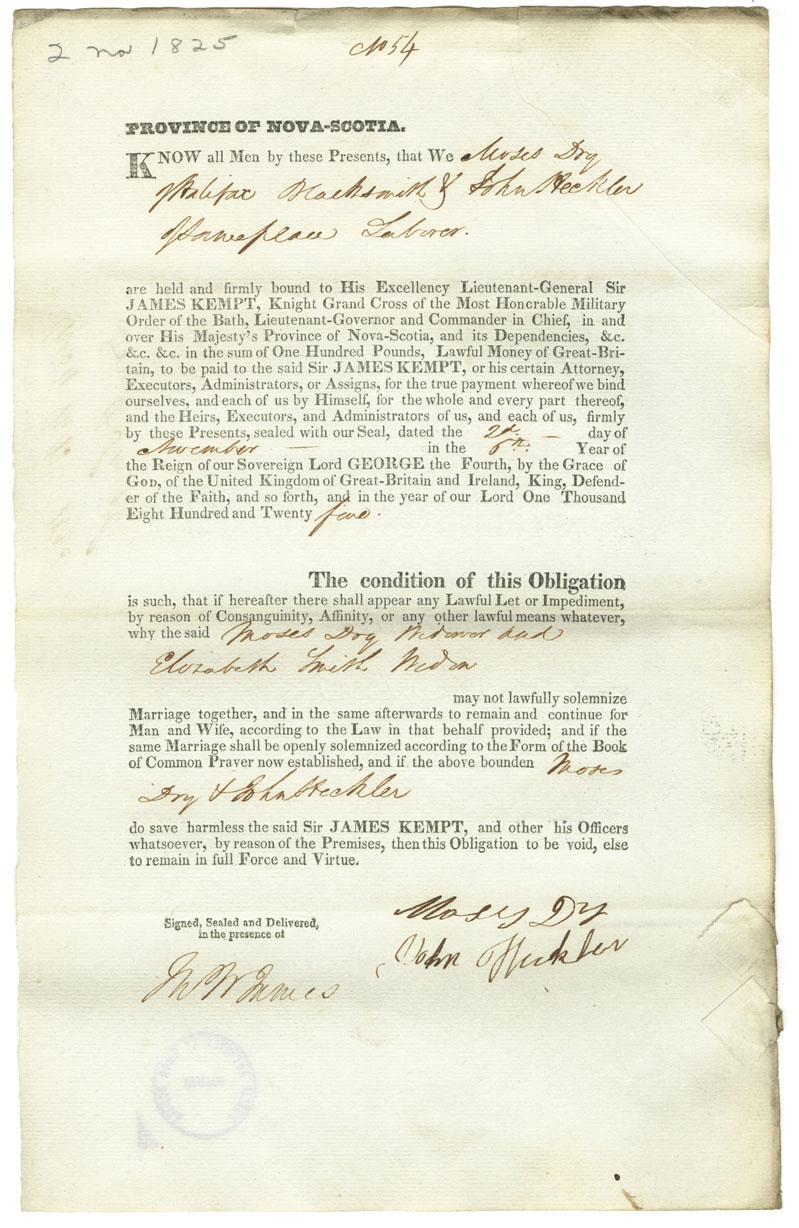 2 no 1825
No 54
PROVINCE OF NOVA-SCOTIA.
KNOW all Men by these Presents, that We Moses Dry
of Halifax Blacksmith & John Heckler
of same place Laborer.
are held and firmly bound to His Excellency Lieutenant-General Sir
JAMES KEMPT, Knight Grand Cross of the Most Honorable Military
Order of the Bath, Lieutenant-Governor and Commander in Chief, in and
over His Majesty's Province of Nova-Scotia, and its Dependencies, &c.
&c. &c. in the sum of One Hundred Pounds, Lawful Money of Great-Bri-
tain, to be paid to the said Sir JAMES KEMPT, or his certain Attorney,
Executors, Administrators, or Assigns, for the true payment whereof we bind
ourselves, and each of us by Himself, for the whole and every part thereof,
and the Heirs, Executors, and Administrators of us, and each of us, firmly
by these Presents, sealed with our Seal, dated the 2d — day of
November — in the 6th. Year of
the Reign of our Sovereign Lord GEORGE the Fourth, by the Grace of
GOD, of the United Kingdom of Great-Britain and Ireland, King, Defend-
er of the Faith, and so forth, and in the year of our Lord One Thousand
Eight Hundred and Twenty five.
The condition of this Obligation
is such, that if hereafter there shall appear any Lawful Let or Impediment,
by reason of Consanguinity, Affinity, or any other lawful means whatever,
why the said Moses Dry Widower and
Elizabeth Smith Widow
may not lawfully solemnize
Marriage together, and in the same afterwards to remain and continue for
Man and Wife, according to the Law in that behalf provided; and if the
same Marriage shall be openly solemnized according to the Form of the Book
of Common Prayer now established, and if the above bounden Moses
Dry & John Heckler
do save harmless the said Sir JAMES KEMPT, and other his Officers
whatsoever, by reason of the Premises, then this Obligation to be void, else
to remain in full Force and Virtue.
Moses Dry
Signed, Sealed and Delivered,
in the presence of
John Heckler
W James